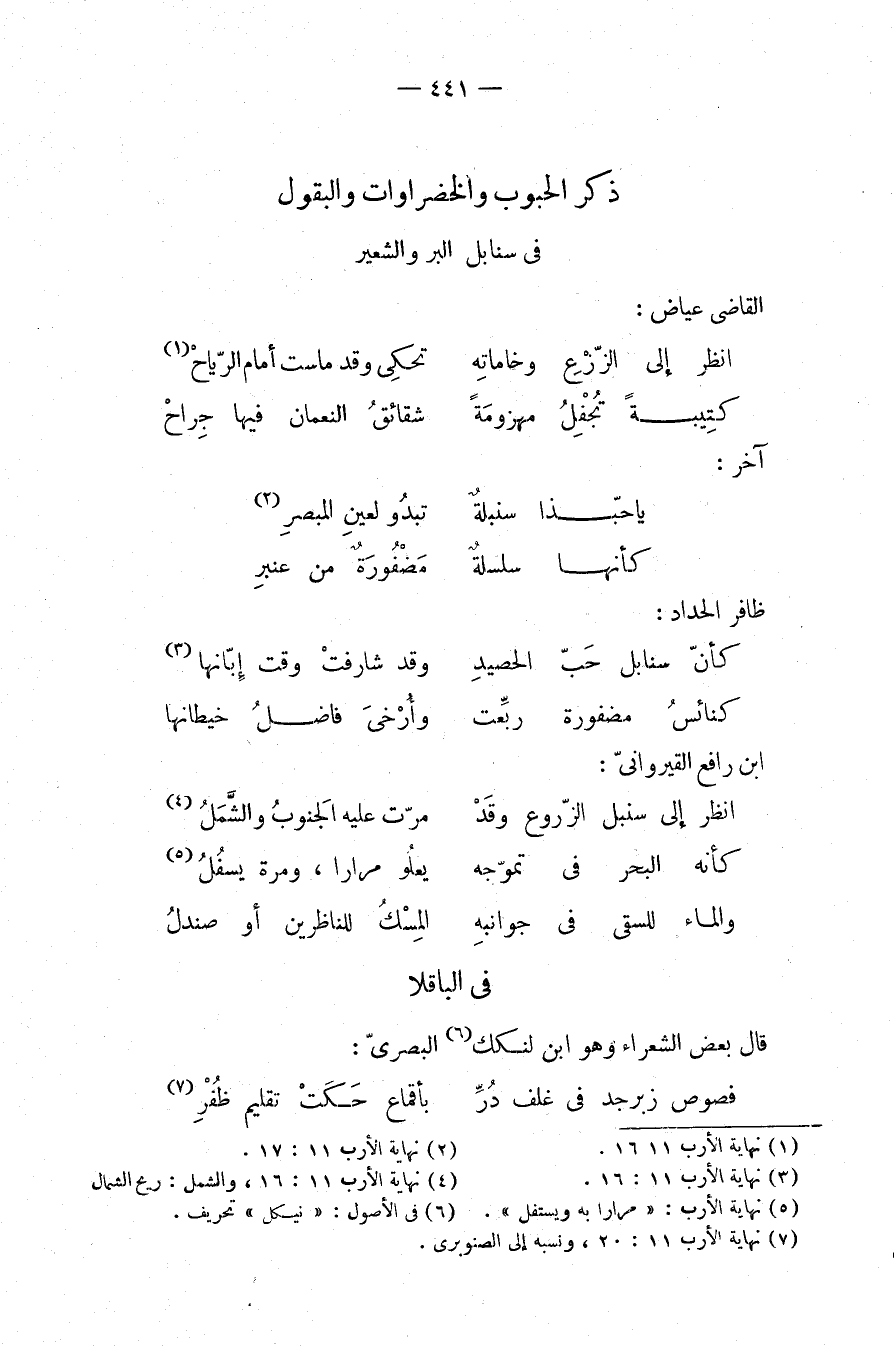 — ٤٤١ —
ذكر الحبوب والخضراوات والبقول
فى سنابل البر والشعير
القاضى عياض :
انظر إلى الزّرْعِ وخاماتِهِ تحكِى وقد ماست أمام الرّياحْ(١)
كتِيبةً تُجْفِلُ مهزومَةً شقائقُ النعمان فيها جِراحْ
آخر :
ياحبّذا سنبلةٌ تبدُو لعينِ المبصرِ(٢)
كأنها سلسلةٌ مَضْفُورَةٌ من عنبرِ
ظافر الحداد :
كأنّ سنابل حَبّ الحصيدِ وقد شارفتْ وقت إبّانها(٣)
كنائسُ مضفورة ربِّعت وأُرْخىَ فاضلُ خيطانها
ابن رافع القيروانىّ :
انظر إلى سنبل الزّروع وقَدْ مرّت عليه الجَنوبُ والشَّمَلُ(٤)
كأنه البحر فى تموّجه يعلُو مرارا ، ومرة يسفُلُ(٥)
والماء للسقى فى جوانبِهِ المِسْكُ للناظرين أو صندلُ
فى الباقلا
قال بعض الشعراء وهو ابن لنكك(٦) البصرىّ :
فصوص زبرجد فى غلف دُرِّ بأقماع حَكَتْ تقليم ظُفْرِ(٧)
(١) نهاية الأرب ١١ ١٦ . (٢) نهاية الأرب ١١ : ١٧ .
(٣) نهاية الأرب ١١ : ١٦ . (٤) نهاية الأرب ١١ : ١٦ ، والشمل : ريح الشمال
(٥) نهاية الأرب : « مرارا به ويستفل » . (٦) فى الأصول : « نيكل » تحريف .
(٧) نهاية الأرب ١١ : ٢٠ ، ونسبه إلى الصنوبرى .